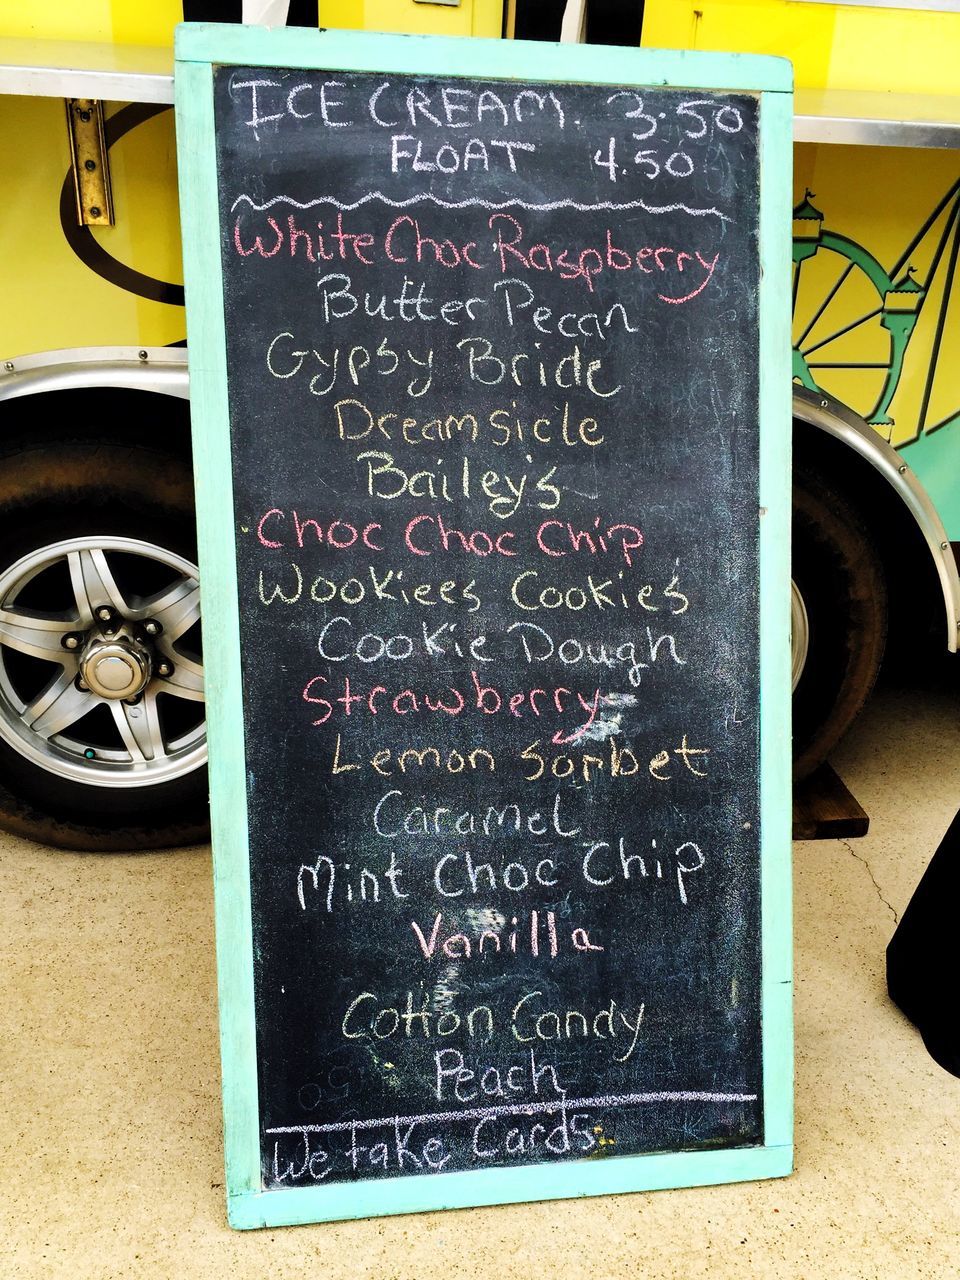 ICE CREAM. 3.50
FLOAT 4.50
White Choc Raspberry
Butter Pecan
Gypsy Bride
Dreamsicle
Bailey's
Choc Choc Chip
Wookiees Cookies
Cookie Dough
Strawberry
Lemon Sorbet
Caramel
Mint Choc Chip
Vanilla
Cotton Candy
Peach
We take Cards.